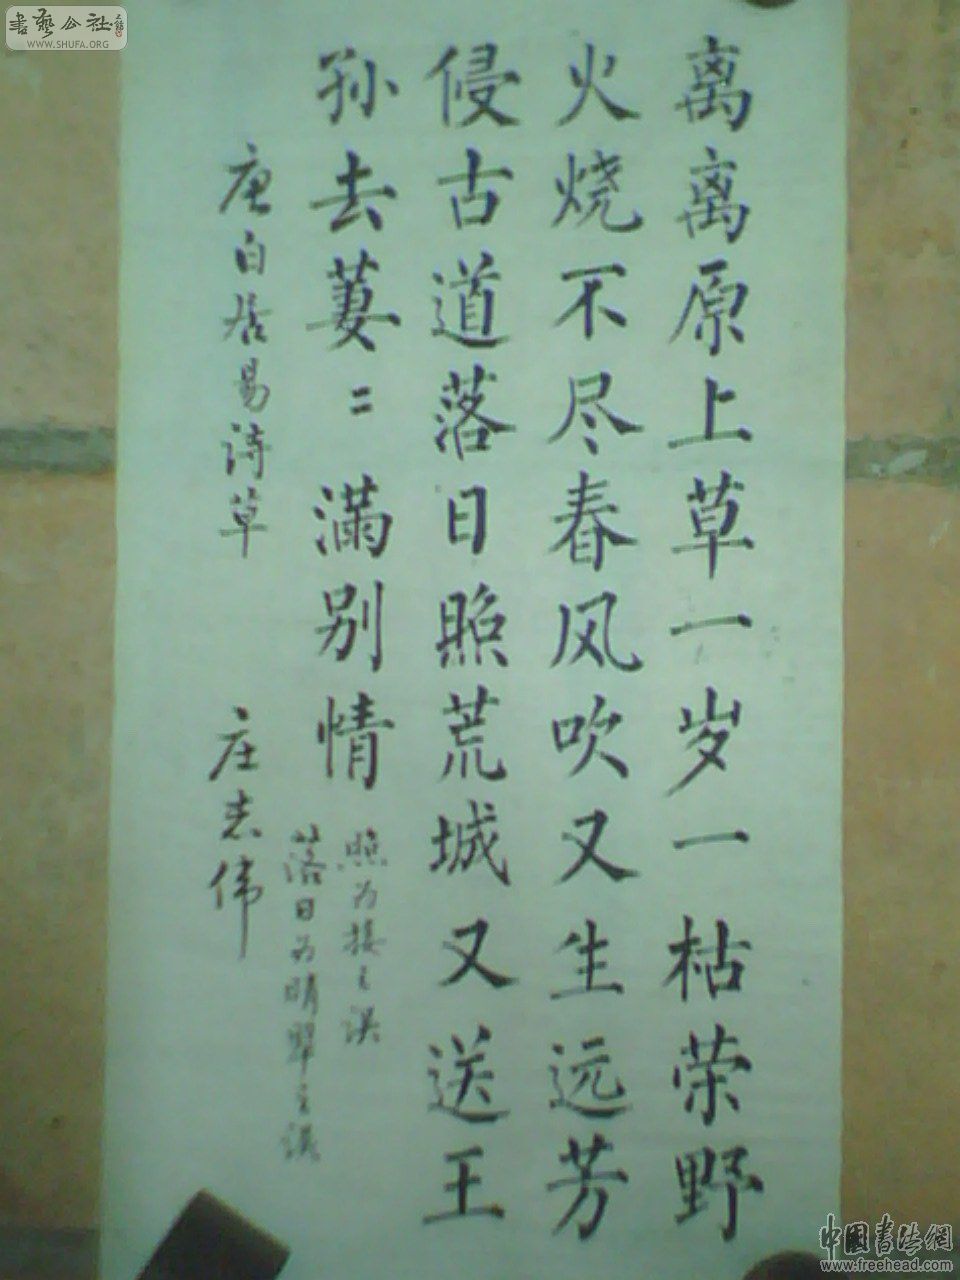 离离原上草一岁一枯荣野
火烧不尽春风吹又生远芳
侵古道落日照荒城又送王
孙去萋〻满别情
照为接之误
落日为晴翠之误
唐白居易诗草
庄志伟
書藝公社
WWW.SHUFA.ORG
中國書法網
www.freehead.com